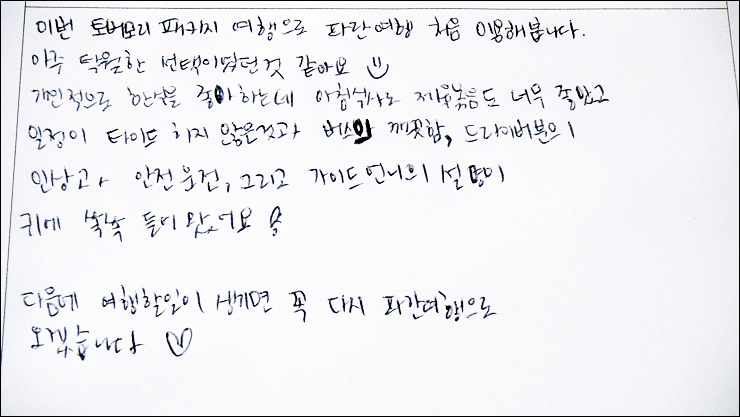 이번 토버모리 패키지 여행으로 파란여행 처음 이용해봅니다.
아주 탁월한 선택이었던것 같아요
개인적으로 한식을 좋아하는데 아침식사로 제육볶음도 너무 좋았고
일정이 타이트 하지 않은것과 버스의 깨끗함, 드라이버분의
인상과, 안전운전, 그리고 가이드언니의 설명이
귀에 쏙쏙 들어왔어요
다음에 여행할일이 생기면 꼭 다시 파란여행으로
오겠습니다 ♡